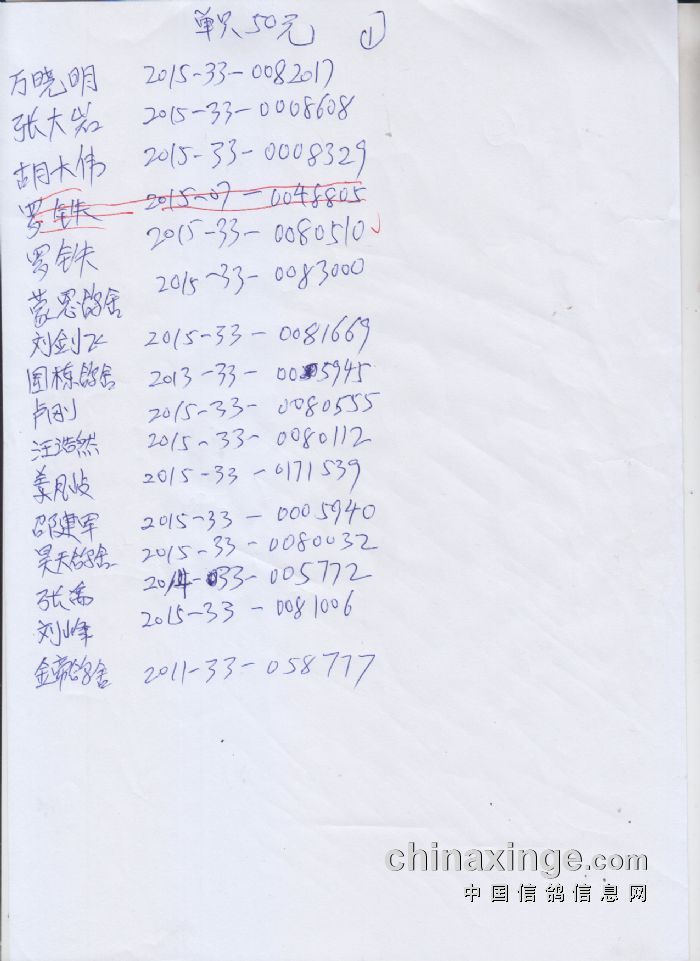 单只50元 ①
万晓明 2015-33-0082017
张大岩 2015-33-0008608
胡大伟 2015-33-0008329
罗铁 2015-07-0048805
罗铁 2015-33-0080510
蒙恩鸽舍 2015-33-0083000
刘剑飞 2015-33-0081669
国栋鸽舍 2013-33-005945
卢刚 2015-33-0080555
汪浩然 2015-33-0080112
姜凤岐 2015-33-0171539
邵建军 2015-33-0005940
昊天鸽舍 2015-33-0080032
张 2014-33-005772
刘峰 2015-33-0081006
金帝鸽舍 2011-33-058777
chinaxinge.com
中国信鸽信息网